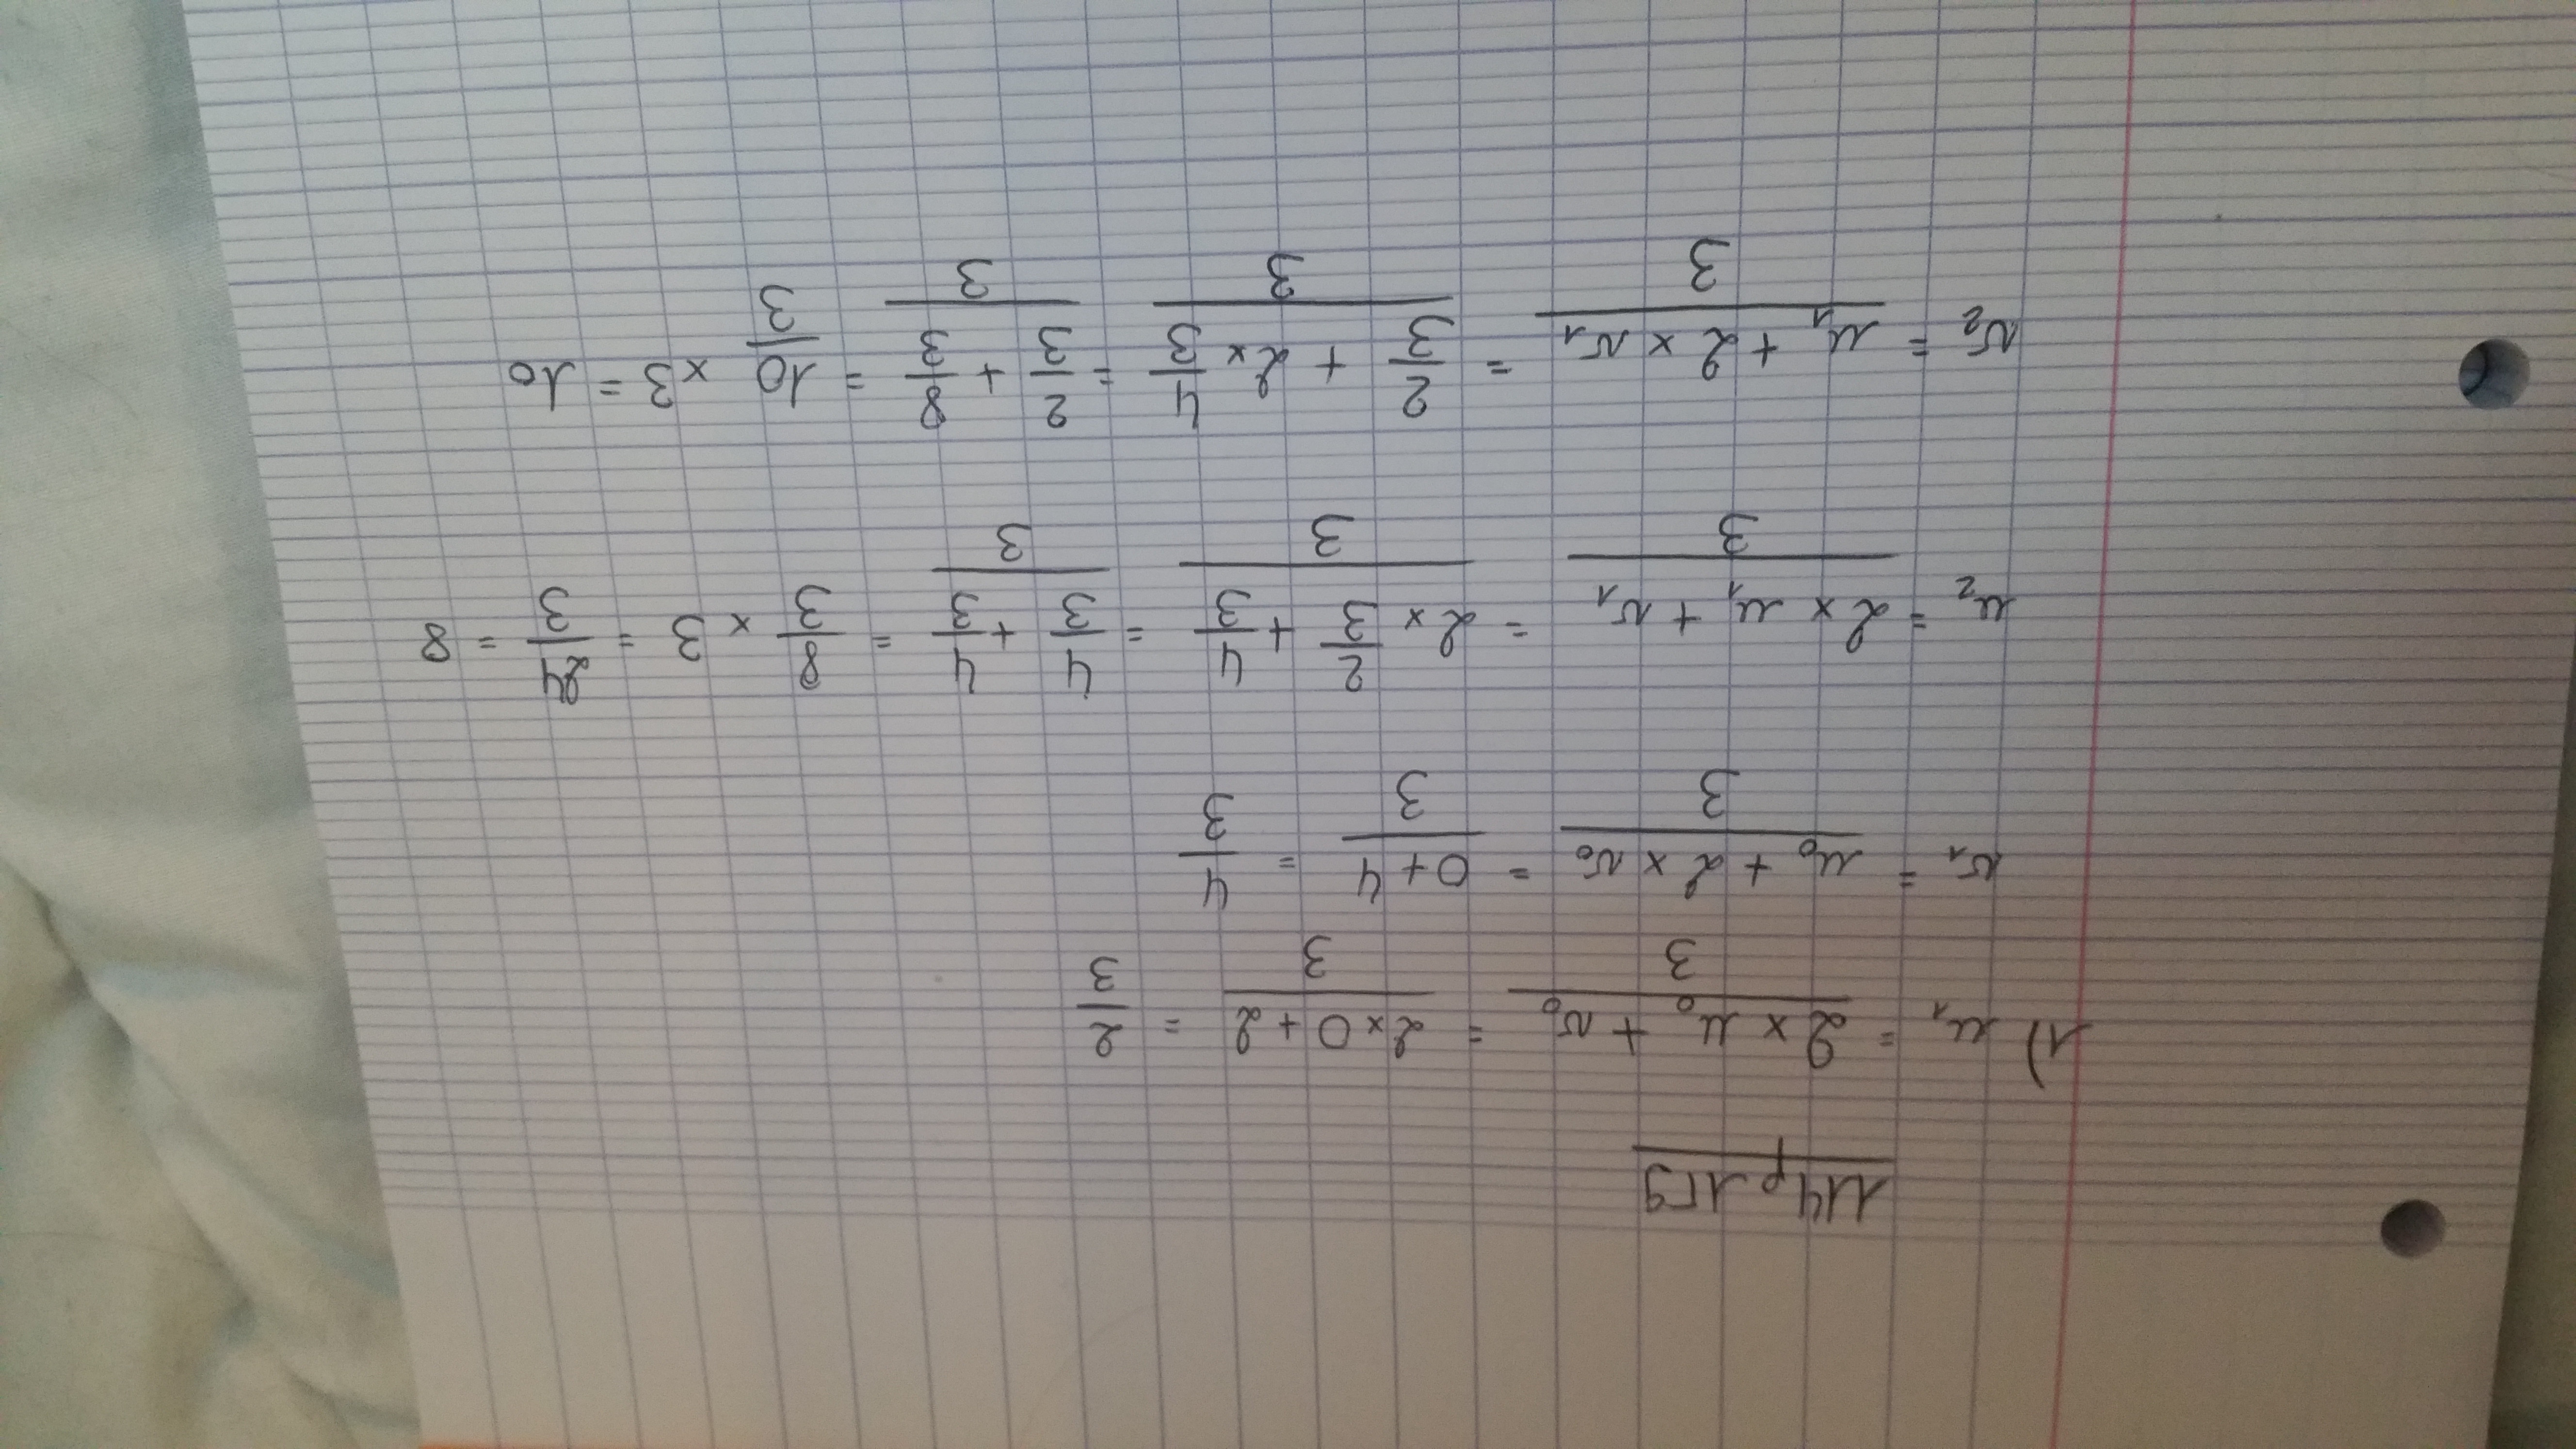 114 p 159
1) u₁ = (2 × u₀ + v₀)/3 = (2×0+2)/3 = 2/3
v₁ = (u₀ + 2 × v₀)/3 = (0+4)/3 = 4/3
u₂ = (2 × u₁ + v₁)/3 = (2× 2/3 + 4/3)/3 = (4/3 + 4/3)/3 = 8/3 × 3 = 24/3 = 8
v₂ = (u₁ + 2 × v₁)/3 = (2/3 + 2× 4/3)/3 = (2/3 + 8/3)/3 = 10/3 × 3 = 10